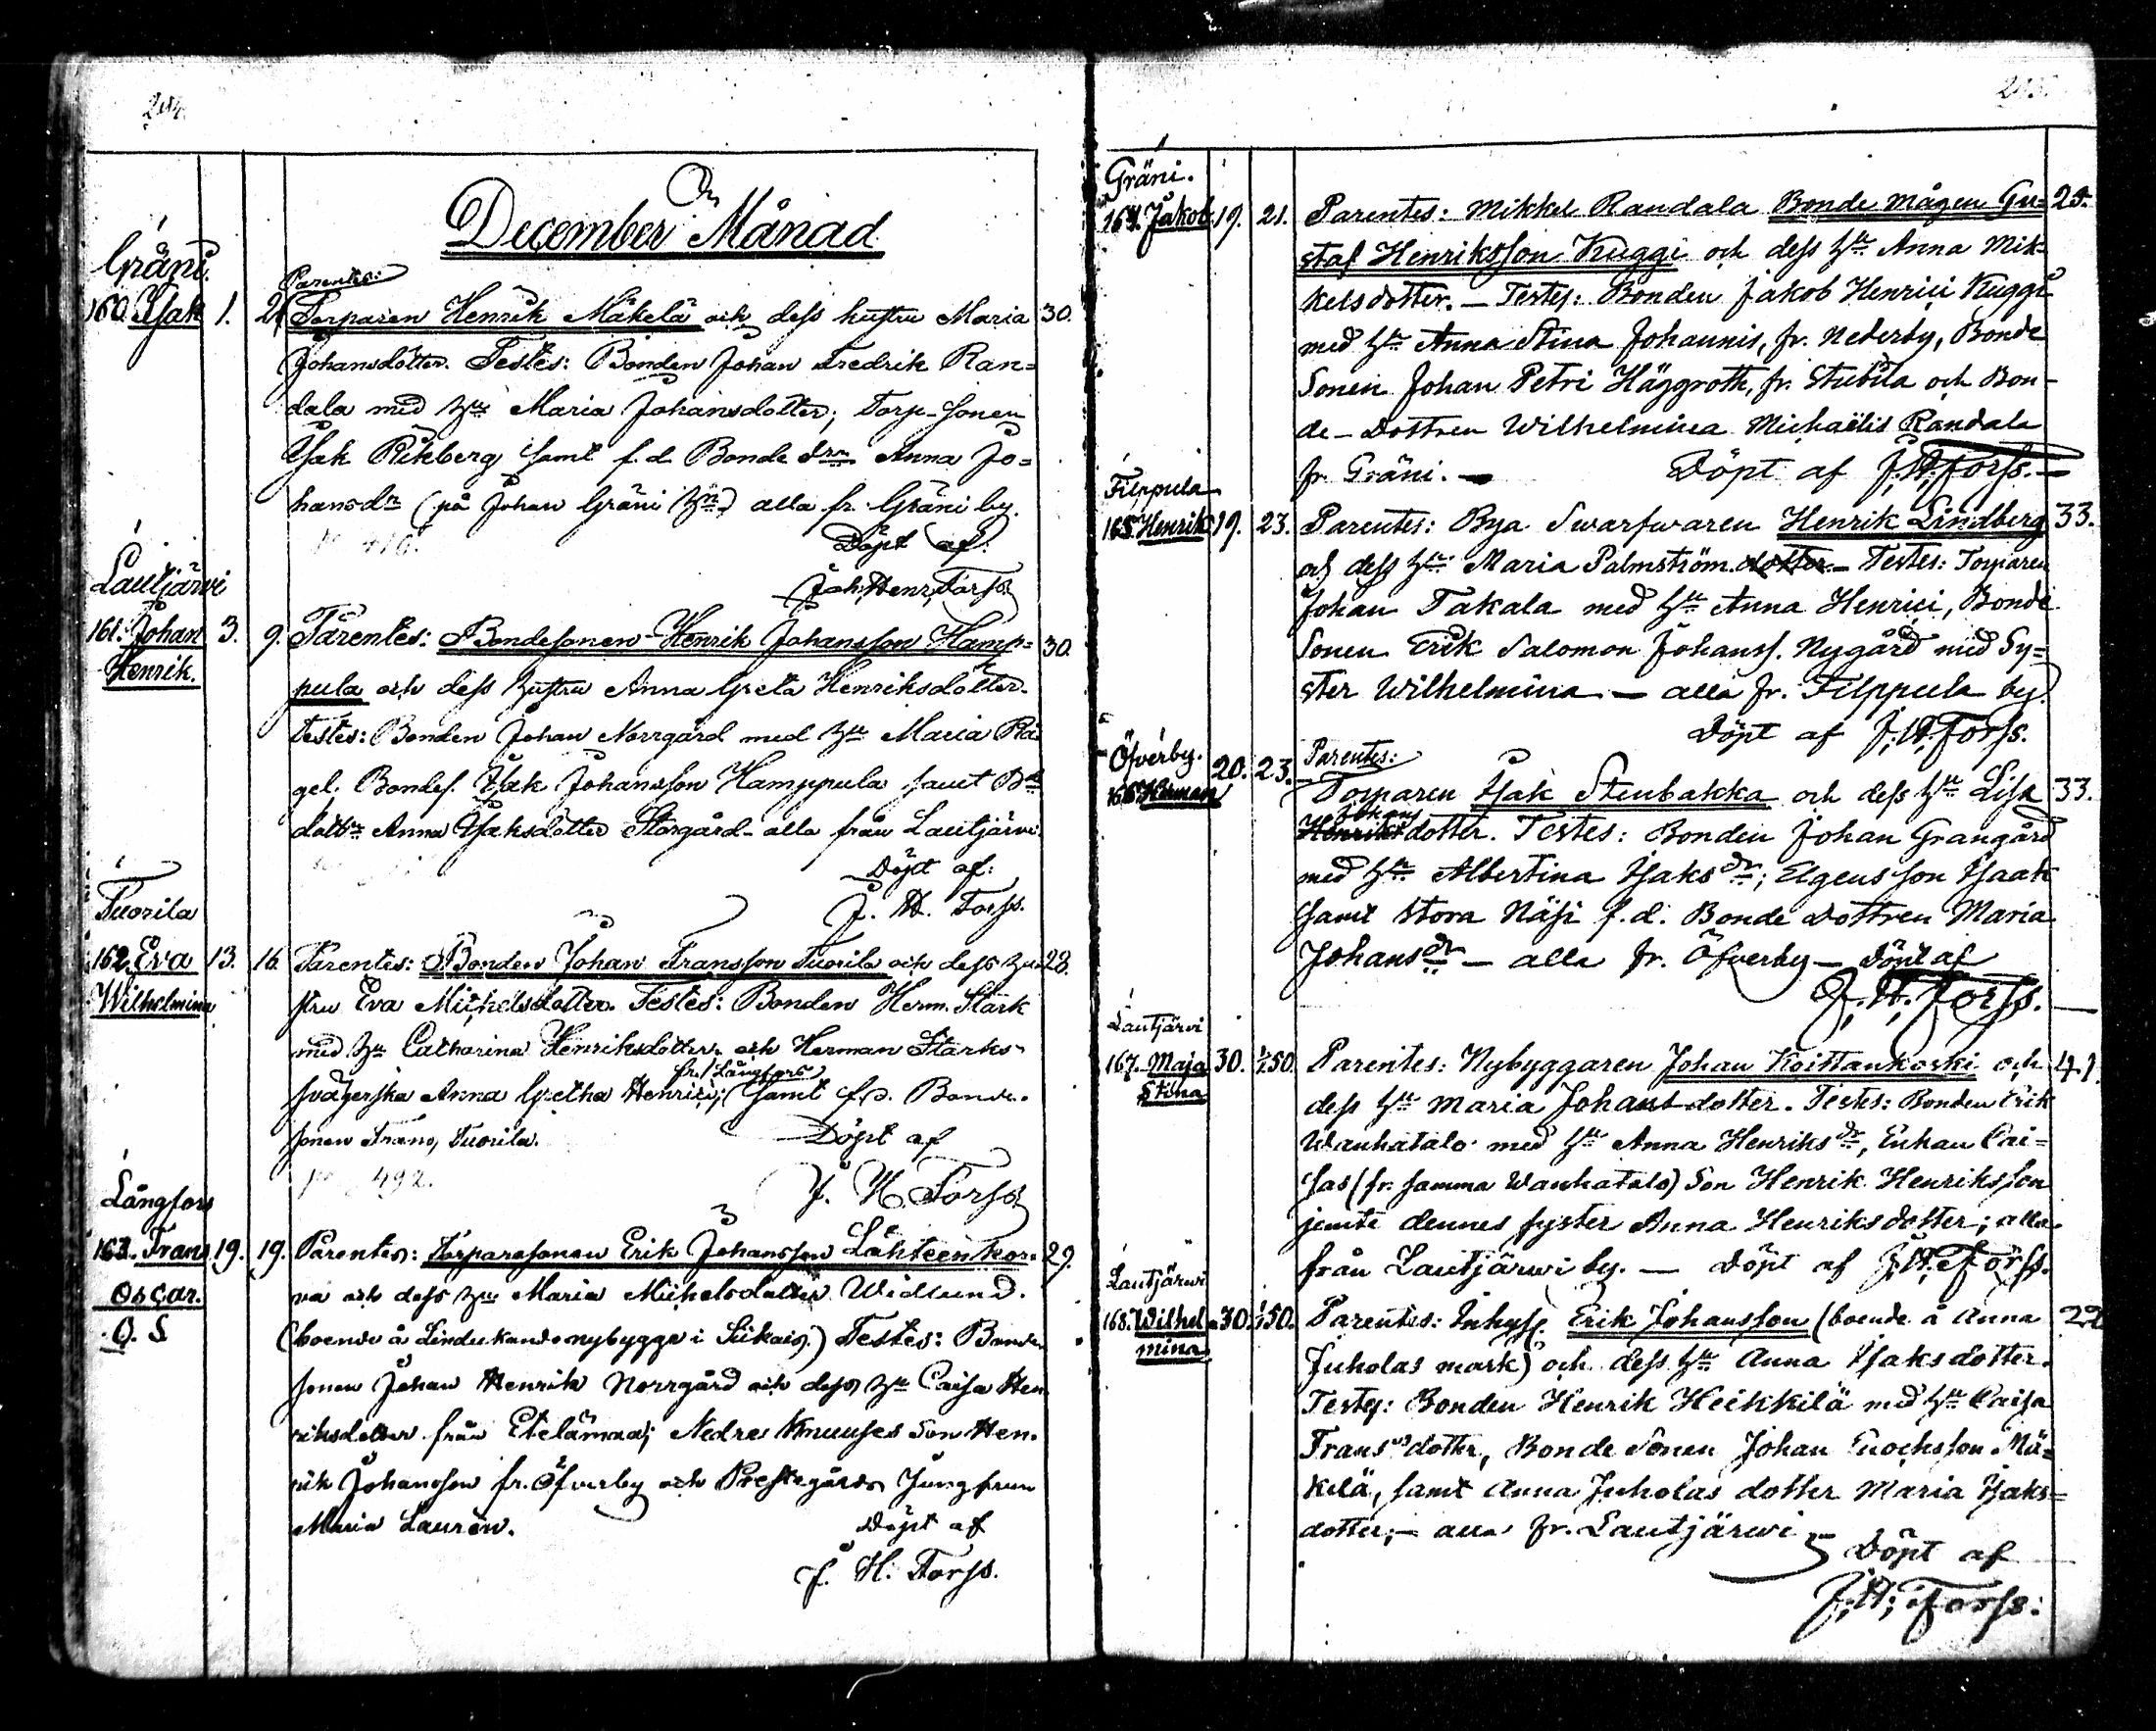 204.
December Månad
Gräni.
Parentes:
160. Isak 1. 2. Torparen Henrik Mäkelä och dess hustru Maria 30.
Johansdotter. Testes: Bonden Johan Fredrik Ran=
dala med hu Maria Johansdotter; Torp-sonen
Isak Rikberg samt f.d. Bonde drn Anna Jo=
hansdr (på Johan Gräni) alla fr. Gräni by.
Döpt af:
Joh. Henr. Forss
Lautjärvi
161. Johan 3. 9. Parentes: Bondesonen Henrik Johansson Hamp= 30.
Henrik.
pula och dess hustru Anna Greta Henriksdotter.
Testes: Bonden Johan Norrgård med hu Maria
gel. Bondes. Isak Johansson Hamppula samt Bde
dottrn Anna Isaksdotter Storgård - alla från Lautjärvi.
Döpt af:
J. H. Forss.
Tuorila
162. Eva 13. 16. Parentes: Bonden Johan Fransson Tuorila och dess hu= 28.
Wilhelmina
stru Eva Michelsdotter. Testes: Bonden Herm. Stark
med hu Catharina Henriksdotter och Herman Starks
fr. Långfors
svägerska Anna Gretha Henrici; samt f.d. Bonde-
sonen Frans, Tuorila.
Döpt af
492.
J. H. Forss
Långfors
163. Frans 19. 19. Parentes: Torparesonen Erik Johansson Lähteenkor= 29.
Oscar.
O. S
va och dess hu Maria Michelsdotter Widlund.
(boende å Lindukando nybygge i Siikais.) Testes: Bonde
sonen Johan Henrik Norrgård och dess hu Caisa Hen
riksdotter från Etelämaa; Nedre Knuuses Son Hen-
rik Johansson fr. Öfverby och Prestegårds Jungfrun
Maria Lauren.
Döpt af
J. H. Forss.
205.
Gräni.
164. Jakob 19. 21. Parentes: Mikkel Randala Bonde mågen Gu= 25.
staf Henriksson Kuggi och dess hu Anna Mik
kelsdotter. — Testes: Bonden Jakob Henrici Kuggi
med hu Anna Stina Johannis, fr. Nederby, Bonde
Sonen Johan Petri Häggroth, fr. Stubila och Bon-
de-Dottren Wilhelmina Michaëlis Randala
fr. Gräni. — Döpt af J. H. Forss. —
Filppula
165. Henrik 19. 23. Parentes: Bya Swarfwaren Henrik Lindberg 33.
och dess hu Maria Palmström dotter — Testes: Torparen
Johan Takala med hu Anna Henrici, Bonde
Sonen Erik Salomon Johanss. Nygård med Sy=
ster Wilhelmina — alla fr. Filppula by.
Döpt af J. H. Forss.
Öfverby.
Parentes:
166. Herman 20. 23. Torparen Isak Stenbakka och dess hu Lisa 33.
Johans
Henriksdotter. Testes: Bonden Johan Grangård
med hu Albertina Isaksdr; Elgens son Isaak
samt Stora Näsi f.d. Bonde Dottren Maria
Johansdr — alla fr. Öfverby — Döpt af
J. H. Forss.
Lautjärvi
167. Maja 30. 1/1 50. Parentes: Nybyggaren Johan Koittankoski och 41.
Stina
dess hu Maria Johans dotter. Testes: Bonden Erik
Wanhatalo med hu Anna Henriksdr, Enkan Cai=
sas (fr. samma Wanhatalo) Son Henrik Henriksson
jemte dennes syster Anna Henriksdotter; alla
från Lautjärwi by. — Döpt af J. H. Forss.
Lautjärwi
168. Wilhel= 30. 1/1 50. Parentes: Inhys. Erik Johansson (boende å Anna 22
mina
Juholas mark) och dess hu Anna Isaksdotter.
Testes: Bonden Henrik Heikkilä med hu Caisa
Frans dotter, Bonde Sonen Johan Enochsson Mä=
kelä, samt Anna Juholas dotter Maria Isaks=
dotter; — alla fr. Lautjärwi
Döpt af
J. H. Forss.